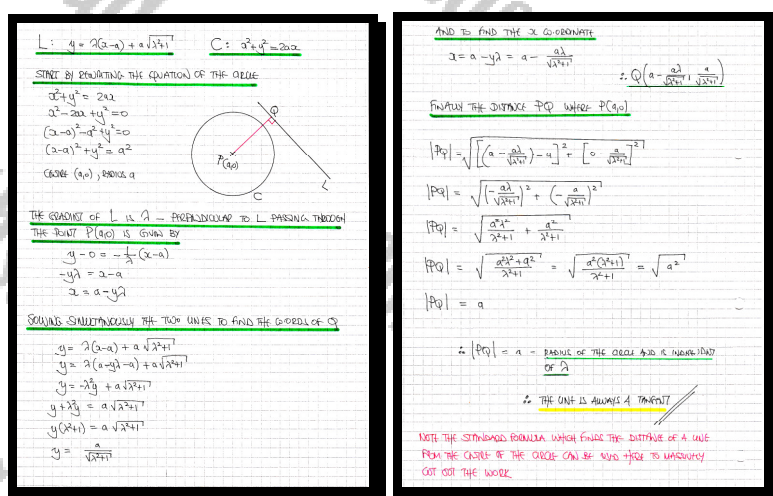 L: y = λ(x-a) + a√λ²+1
C: x²+y² = 2ax
START BY REWRITING THE EQUATION OF THE CIRCLE
x²+y² = 2ax
x²-2ax+y²=0
(x-a)²-a²+y²=0
(x-a)²+y² = a²
CENTRE (a,0), RADIUS a
Q
P(a,0)
L
C
THE GRADIENT OF L IS λ - PERPENDICULAR TO L PASSING THROUGH
THE POINT P(a,0) IS GIVEN BY
y-0 = -1/λ (x-a)
-yλ = x-a
x = a-yλ
SOLVING SIMULTANEOUSLY THE TWO LINES TO FIND THE CO-ORDS OF Q
y = λ(x-a) + a√λ²+1
y = λ(a-yλ-a) + a√λ²+1
y = -λ²y + a√λ²+1
y+λ²y = a√λ²+1
y(λ²+1) = a√λ²+1
y = a/√λ²+1
AND TO FIND THE x CO-ORDINATE
x = a-yλ = a - aλ/√λ²+1
∴ Q(a - aλ/√λ²+1, a/√λ²+1)
FINALLY THE DISTANCE PQ WHERE P(a,0)
|PQ| = √[(a - aλ/√λ²+1) - a]² + [0 - a/√λ²+1]²
|PQ| = √(-aλ/√λ²+1)² + (-a/√λ²+1)²
|PQ| = √a²λ²/λ²+1 + a²/λ²+1
|PQ| = √a²λ²+a²/λ²+1 = √a²(λ²+1)/λ²+1 = √a²
|PQ| = a
∴ |PQ| = a - RADIUS OF THE CIRCLE AND IS INDEPENDENT
OF λ
∴ THE LINE IS ALWAYS A TANGENT
NOTE THE STANDARD FORMULA WHICH FINDS THE DISTANCE OF A LINE
FROM THE CENTRE OF THE CIRCLE CAN BE USED HERE TO MASSIVELY
CUT OUT THE WORK